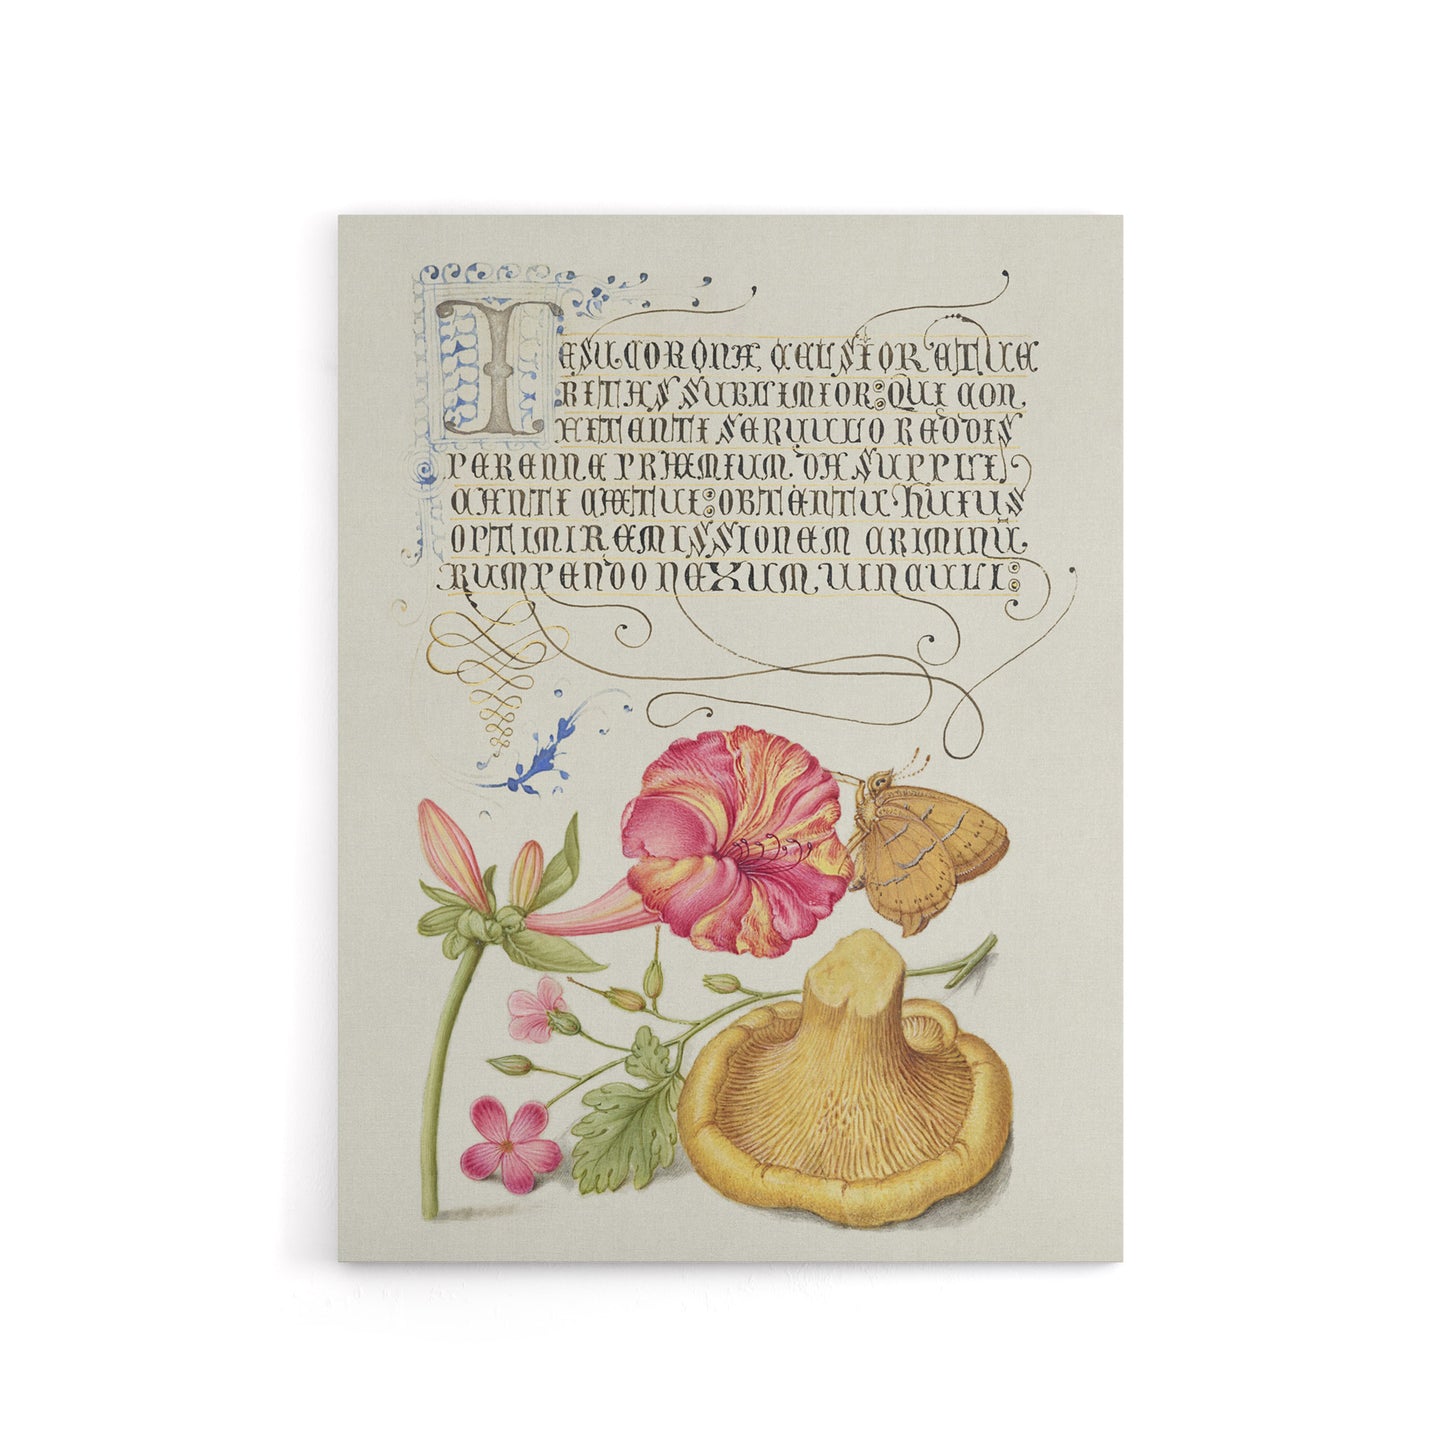 IESU CORONÆ CELSIOR ET VE
RITAS SUBLIMIOR: QUI CON
FITENTI SERVULO REDDIS
PERENNE PRÆMIUM. DA SUPPLI
CANTI CÆTUI: OBTENTU HUIUS
OPTIMI REMISSIONEM CRIMINU
RUMPENDO NEXUM VINCULI: